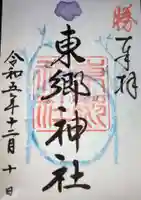 勝
奉拝
東郷神社
令和五年十二月十日